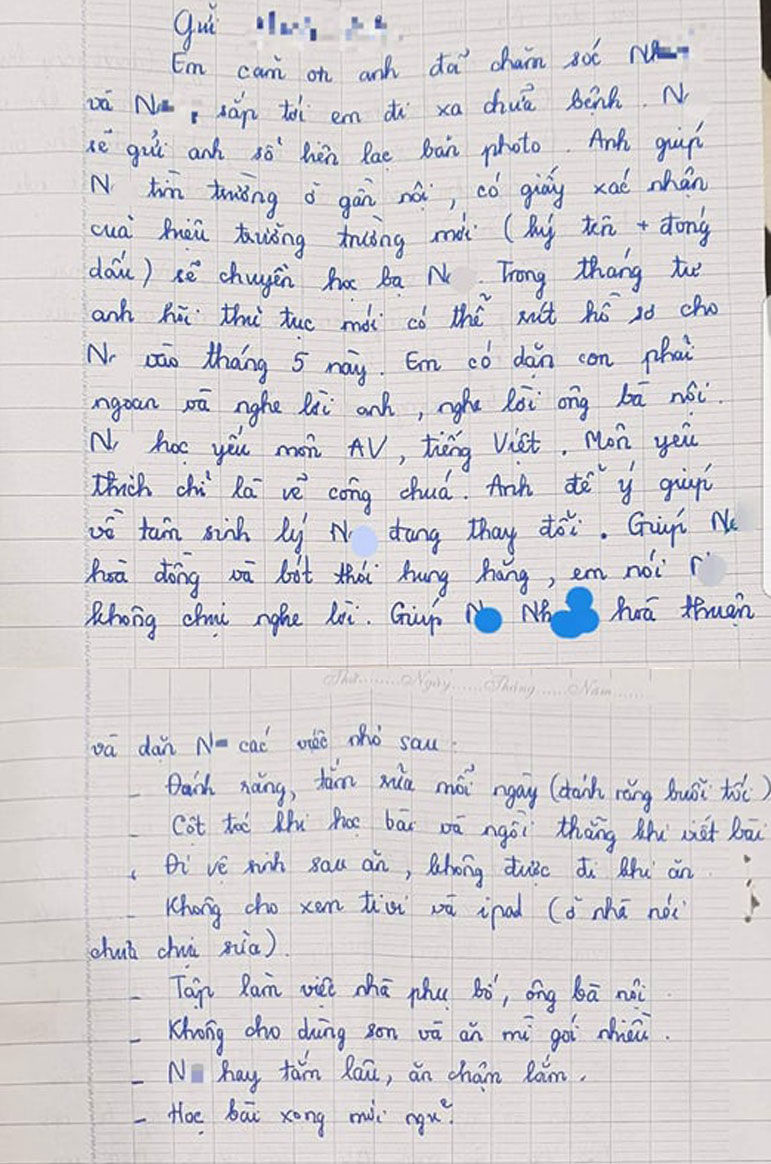 Gửi
Em cảm ơn anh đã chăm sóc Nh
và N , sắp tới em đi xa chữa bệnh. N
sẽ gửi anh sổ liên lạc bản photo. Anh giúp
N tìm trường ở gần nội, có giấy xác nhận
của hiệu trưởng trường mới (ký tên + đóng
dấu) sẽ chuyển học bạ N . Trong tháng tư
anh hỏi thủ tục mới có thể rút hồ sơ cho
N vào tháng 5 này. Em có dặn con phải
ngoan và nghe lời anh, nghe lời ông bà nội.
N học yếu môn AV, tiếng Việt. Môn yêu
thích chỉ là vẽ công chúa. Anh để ý giúp
về tâm sinh lý N đang thay đổi. Giúp N
hoà đồng và bớt thói hung hăng, em nói N
không chịu nghe lời. Giúp N Nh hoà thuận
Thứ........Ngày......Tháng......Năm......
và dặn N các việc nhỏ sau.
- Đánh răng, tắm rửa mỗi ngày (đánh răng buổi tối)
- Cột tóc khi học bài và ngồi thẳng khi viết bài
- Đi vệ sinh sau ăn, không được đi khi ăn.
- Không cho xem tivi và ipad (ở nhà nói
chưa chịu sửa).
- Tập làm việc nhà phụ bố, ông bà nội.
- Không cho dùng son và ăn mì gói nhiều.
- N hay tắm lâu, ăn chậm lắm.
- Học bài xong mới ngủ.